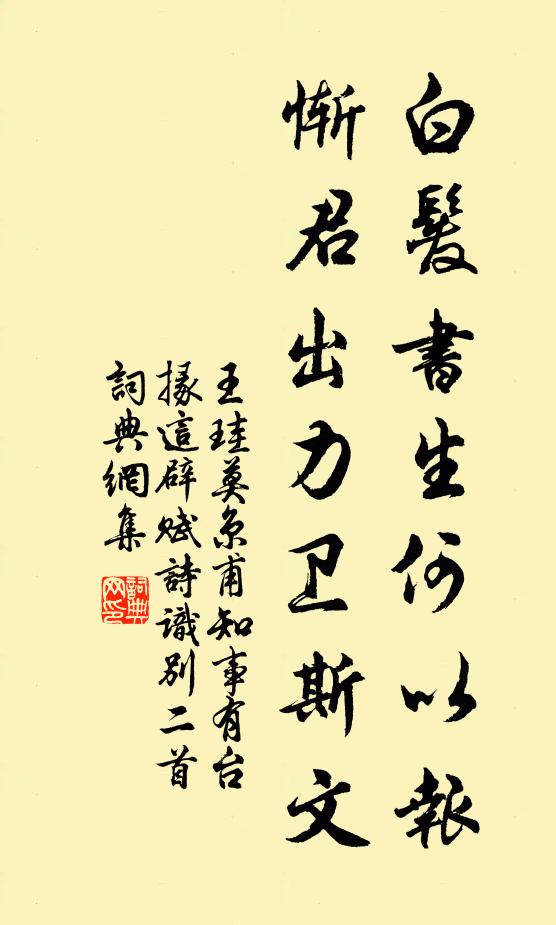 白髮書生何以報
慚君出力卫斯文
王珪莫京甫知事有台
掾這辟赋詩識别二首
詞典網集
詞典
网印